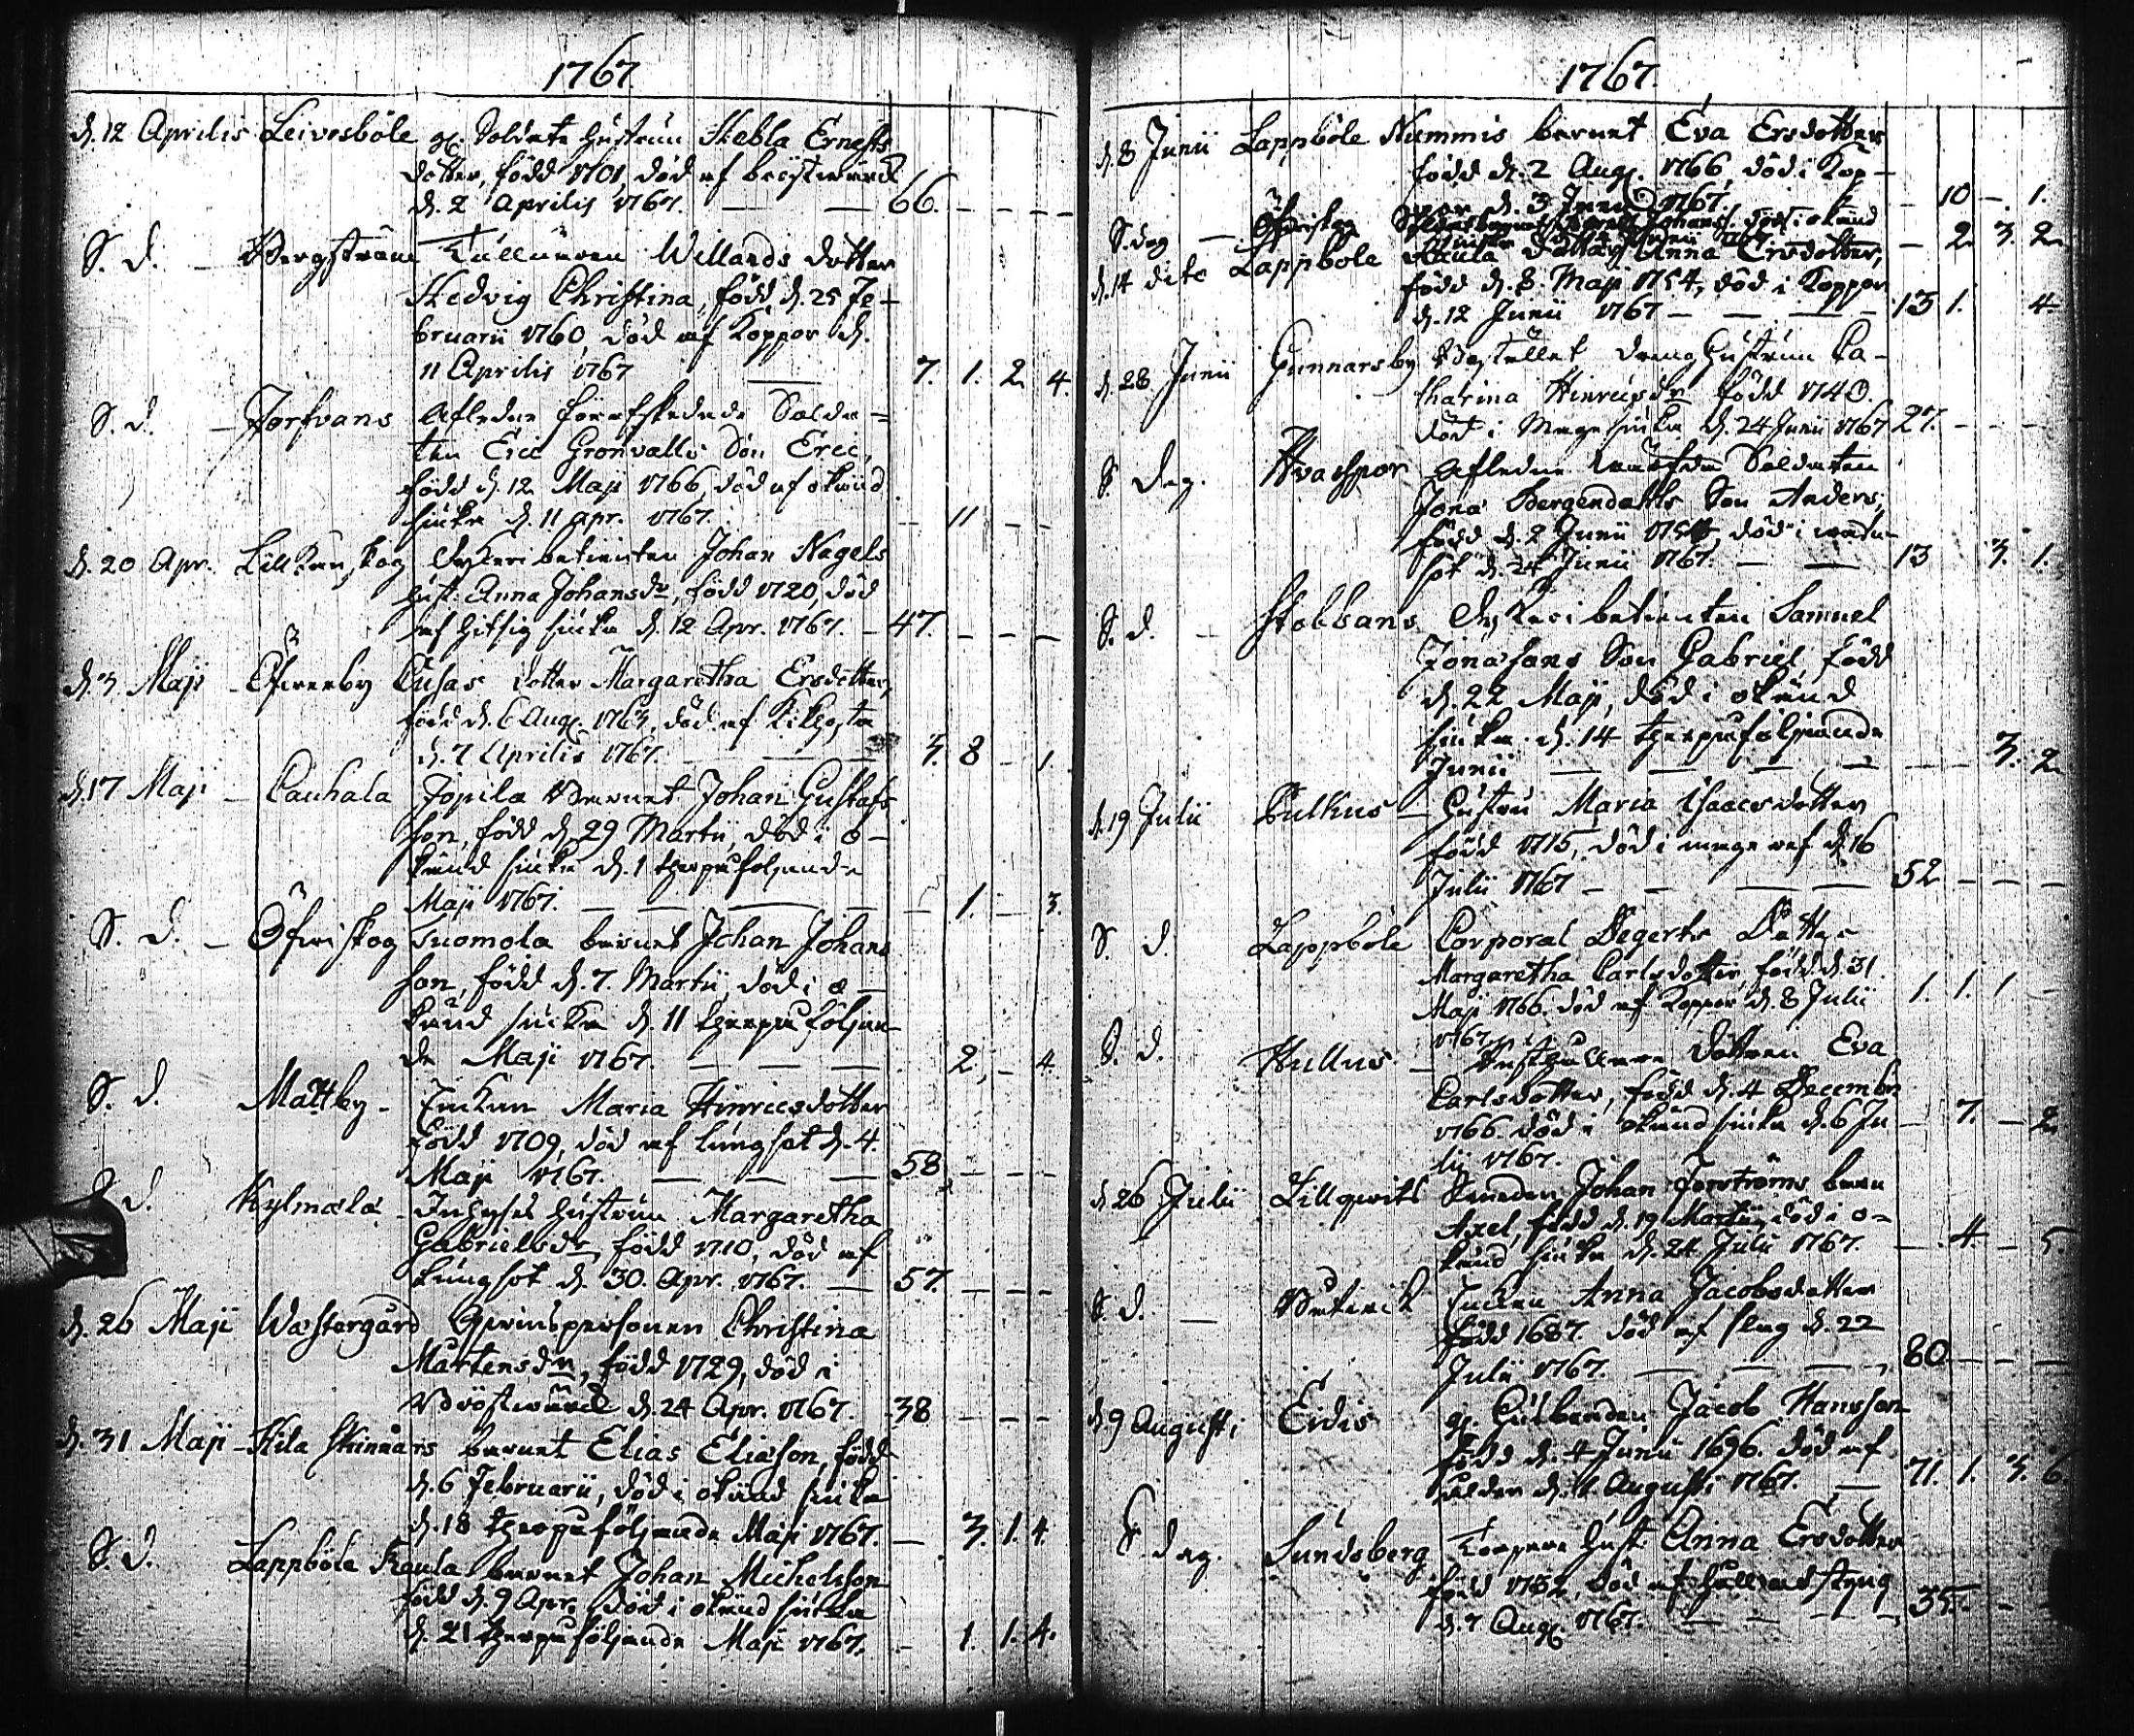 1767.
d. 12 Aprilis Leivosböle gl. Soldats hustrun Hebla Ernests
dotter, född 1701, död af bröstwärck
d. 2 Aprilis 1767. — — 66. - - -
S. d. - Bergström Tullnären Willands dotter
Hedvig Christina, född d. 25 Fe-
bruarii 1760, död af Koppor d.
11 Aprilis 1767 — 7. 1. 2. 4.
S. d. - Torfvans Afledne förafskedade Solda-
ten Eric Grönvalls Son Eric,
född d. 12 Maji 1766, död af okänd
siuka d. 11 apr. 1767. - 11 - -
d. 20 Apr. Lillkanskog betienten Johan Nagels
hust. Anna Johansdr, född 1720, död
af hitsig siuka d. 12 Apr. 1767. - 47. - - -
d. 3 Maji - Öfwerby Cusas dotter Margaretha Ersdotter,
född d. 6 Aug. 1763, död af Kikhosta
d. 7 Aprilis 1767. — 3. 8 - 1.
d. 17 Maji - Cauhala Jopila Barnet Johan Gustafs
son, född d. 29 Martii, död i o-
känd siuka d. 1 therpåfoljande
Maji 1767. — - 1. - 3.
S. d. - Öfwerskog Suomola barnet Johan Johans
son, född d. 7. Martii, död i o-
känd siuka d. 11 therpå följan-
de Maji 1767. — - 2. - 4.
S. d. Mattby - Enkan Maria Hinricsdotter
född 1709, död af lungsot d. 4.
Maji 1767. — 58. - - -
S. d. Kylmälä - Inhyses hustrun Margaretha
Gabrielsdr, född 1710, död af
lungsot d. 30. Apr. 1767. — 57. - - -
d. 26 Maji Wästergård Qwinspersonen Christina
Mårtensdr, född 1729, död i
Bröstwärck d. 24 Apr. 1767. 38 - - -
d. 31 Maji - Kila Skinnars barnet Elias Eliasson, född
d. 6 Februarii, död i okänd siuka
d. 18 therpå följande Maji 1767. - 3. 1. 4.
S. d. Lappböle Kaula barnet Johan Michelsson
född d. 9 Apr., död i okänd siuka
d. 21 therpå följande Maji 1767. - 1. 1. 4.
1767.
d. 8 Junii Lappböle Nummis barnet Eva Ersdotter
född d. 2 Aug. 1766, död i Kop-
por d. 3 Junii 1767. - 10 - 1.
S. dag - Öfwerskog - 2. 3. 2.
d. 14 dito Lappböle Kaula Anna Ersdotter,
född d. 8. Maji 1754, död i Koppor
d. 12 Junii 1767 — — 13 1. 4.
d. 28 Junii Gunnarsby drengs hustrun Ca-
tharina Hinricsdr född 1740.
död i magesiuka d. 24 Junii 1767 27. - - -
S. dag. Afledne Soldaten
Jona Bergendahls Son Anders,
född d. 2 Junii 1754, död i
sot d. 24 Junii 1767. — — 13 3. 1.
S. d. - Stobbans betienten Samuel
Jonasons Son Gabriel född
d. 22 Maji, död i okänd
siuka d. 14 therpåfoljande
Junii — — — 3. 2.
d. 19 Julii - Hustru Maria Isaacsdotter
född 1715, död i mage ref d. 16
Julii 1767 — — 52 - - -
S. d. Lappböle Corporal Degerts Dotter
Margaretha Carlsdotter, född d. 31
Maji 1766. död af Koppor d. 8 Julii 1. 1. 1 -
1767.
S. d. Kullus - Dottren Eva
Carlsdotter, född d. 4 Decembr
1766. död i okänd siuka d. 6 Ju - 7. - 2.
lii 1767.
d. 26 Julii Lillqwits Johan Forströms barn
Axel, född d. 19 Martii, död i o-
känd siuka d. 24 Julii 1767. - 4. - 5.
S. d. — Enkan Anna Jacobsdotter
född 1687. död af slag d. 22
Julii 1767. — — 80 - - -
d. 9 Augusti Eidis gl. Husbonden Jacob Hansson
född d. 4 Junii 1696. död af
ålder d. Augusti 1767. — 71. 1. 3. 6.
S. dag. Sundsberg Torpare hust. Anna Ersdotter
född 1732, död af håll ock styng
d. 7 Aug. 1767. — — 35. - -